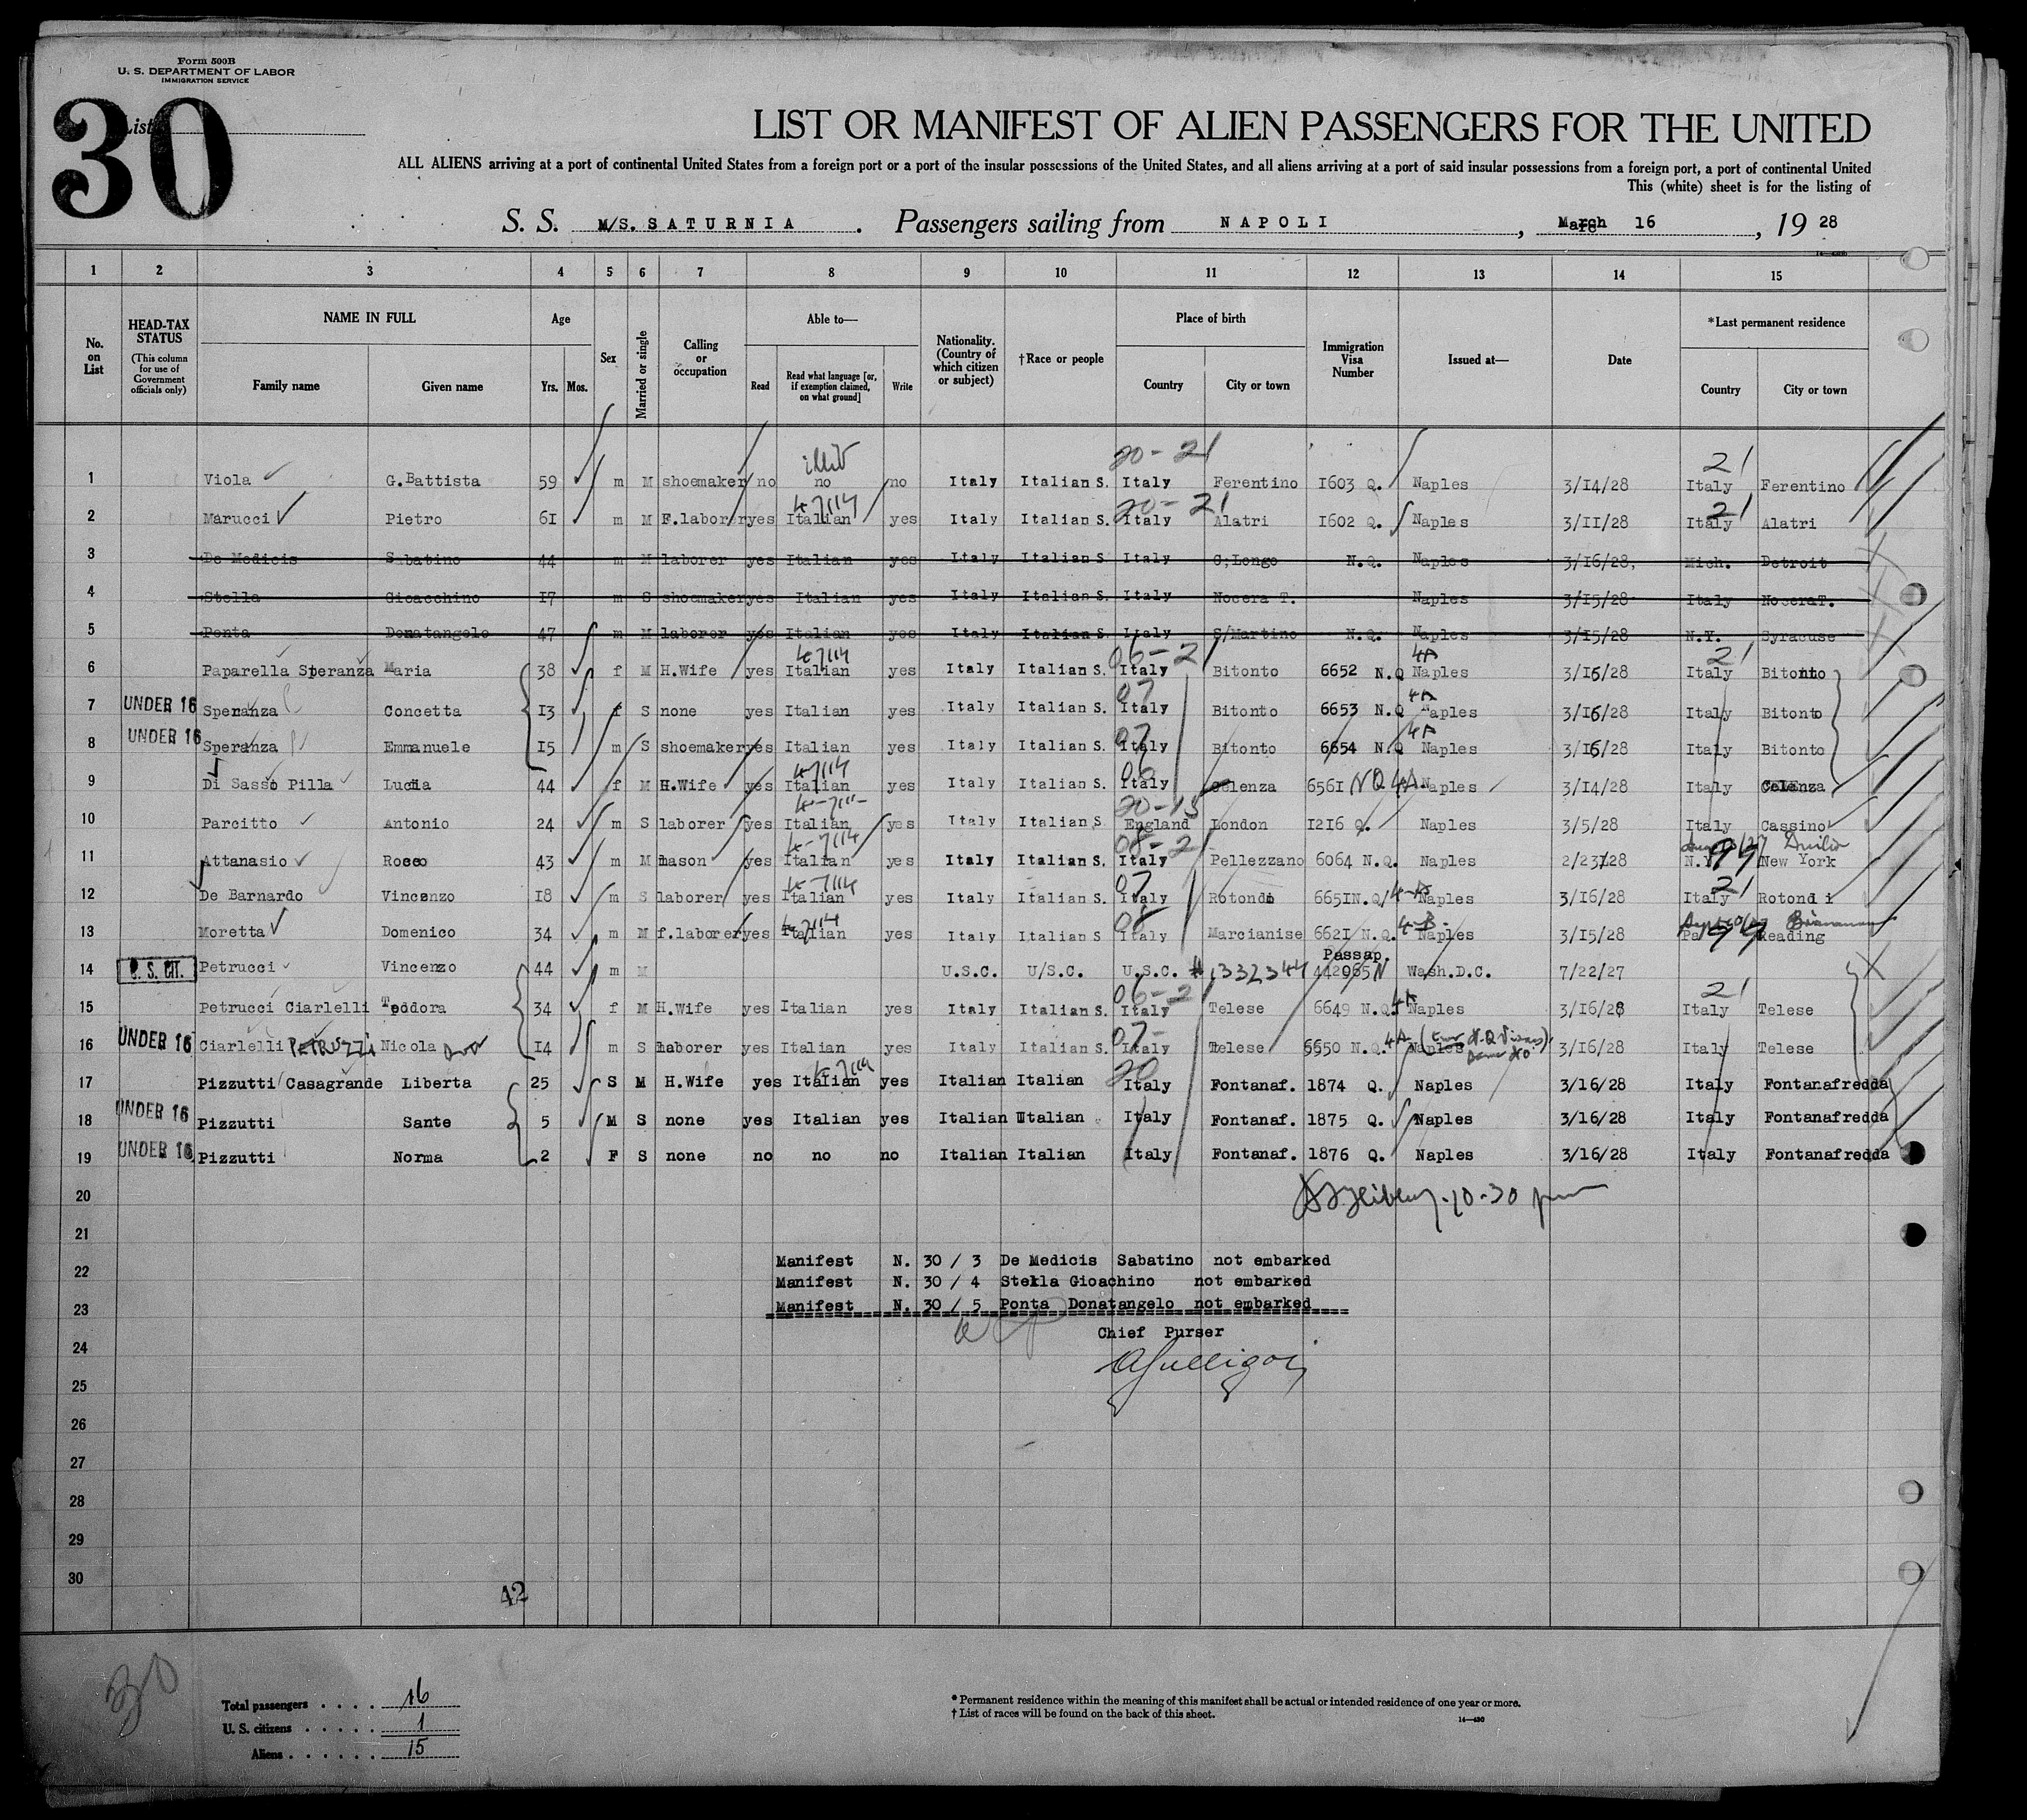 Form 500B
U. S. DEPARTMENT OF LABOR
IMMIGRATION SERVICE
30
List
LIST OR MANIFEST OF ALIEN PASSENGERS FOR THE UNITED
ALL ALIENS arriving at a port of continental United States from a foreign port or a port of the insular possessions of the United States, and all aliens arriving at a port of said insular possessions from a foreign port, a port of continental United
This (white) sheet is for the listing of
S. S. M/S. SATURNIA . Passengers sailing from NAPOLI , March 16 , 19 28
1 2 3 4 5 6 7 8 9 10 11 12 13 14 15
No. on List
HEAD-TAX STATUS (This column for use of Government officials only)
NAME IN FULL
Family name Given name
Age
Yrs. Mos.
Sex
Married or single
Calling or occupation
Able to—
Read
Read what language [or, if exemption claimed, on what ground]
Write
Nationality. (Country of which citizen or subject)
†Race or people
Place of birth
Country City or town
Immigration Visa Number
Issued at—
Date
*Last permanent residence
Country City or town
20-21 21
1 Viola G.Battista 59 m M shoemaker no no no Italy Italian S. Italy Ferentino 1603 Q. Naples 3/14/28 Italy Ferentino
20-21 21
2 Marucci Pietro 61 m M F.laborer yes Italian yes Italy Italian S. Italy Alatri 1602 Q. Naples 3/11/28 Italy Alatri
3 De Medicis Sabatino 44 m M laborer yes Italian yes Italy Italian S. Italy C;Longo N.Q. Naples 3/16/28, Mich. Detroit
4 Stella Gioacchino 17 m S shoemaker yes Italian yes Italy Italian S. Italy Nocera T. Naples 3/15/28 Italy NoceraT.
5 Ponta Donatangelo 47 m M laborer yes Italian yes Italy Italian S. Italy S/Martino N.Q. Naples 3/15/28 N.Y. Syracuse
06-2 4A 21
6 Paparella Speranza Maria 38 f M H.Wife yes Italian yes Italy Italian S. Italy Bitonto 6652 N.Q Naples 3/16/28 Italy Bitonto
07 4A
7 UNDER 16 Speranza Concetta 13 f S none yes Italian yes Italy Italian S. Italy Bitonto 6653 N.Q Naples 3/16/28 Italy Bitonto
07 4A
8 UNDER 16 Speranza Emmanuele 15 m S shoemaker yes Italian yes Italy Italian S. Italy Bitonto 6654 N.Q Naples 3/16/28 Italy Bitonto
06
9 Di Sasso Pilla Lucia 44 f M H.Wife yes Italian yes Italy Italian S. Italy Celenza 6561 NQ 4A Naples 3/14/28 Italy Celenza
20-15
10 Parcitto Antonio 24 m S laborer yes Italian yes Italy Italian S England London 1216 Q. Naples 3/5/28 Italy Cassino
08-2
11 Attanasio Rocco 43 m M mason yes Italian yes Italy Italian S. Italy Pellezzano 6064 N.Q. Naples 2/23/28 N.Y. 99 New York
07 21
12 De Barnardo Vincenzo 18 m S laborer yes Italian yes Italy Italian S. Italy Rotondi 6651N.Q/ 4-A Naples 3/16/28 Italy Rotondi
08 4-B
13 Moretta Domenico 34 m M f.laborer yes Italian yes Italy Italian S Italy Marcianise 6621 N.Q. Naples 3/15/28 Pa 99 Reading
Passap.
14 U. S. CIT. Petrucci Vincenzo 44 m M U.S.C. U/S.C. U.S.C. #1332344 442965 N Wash.D.C. 7/22/27
06-2 4A 21
15 Petrucci Ciarlelli Teodora 34 f M H.Wife yes Italian yes Italy Italian S. Italy Telese 6649 N.Q. Naples 3/16/28 Italy Telese
07-
16 UNDER 16 Ciarlelli PETRUZZI Nicola 14 m S laborer yes Italian yes Italy Italian S. Italy Telese 6650 N.Q. 4A Naples 3/16/28 Italy Telese
20
17 Pizzutti Casagrande Liberta 25 S M H.Wife yes Italian yes Italian Italian Italy Fontanaf. 1874 Q. Naples 3/16/28 Italy Fontanafredda
18 UNDER 16 Pizzutti Sante 5 M S none yes Italian yes Italian Italian Italy Fontanaf. 1875 Q. Naples 3/16/28 Italy Fontanafredda
19 UNDER 16 Pizzutti Norma 2 F S none no no no Italian Italian Italy Fontanaf. 1876 Q. Naples 3/16/28 Italy Fontanafredda
20
10-30 pm
21
Manifest N. 30 / 3 De Medicis Sabatino not embarked
22
Manifest N. 30 / 4 Stella Gioachino not embarked
23 Manifest N. 30 / 5 Ponta Donatangelo not embarked
Chief Purser
24
25
26
27
28
29
30
42
30
Total passengers . . . . 16
U. S. citizens . . . . . 1
Aliens . . . . . . 15
* Permanent residence within the meaning of this manifest shall be actual or intended residence of one year or more.
† List of races will be found on the back of this sheet.
14—430